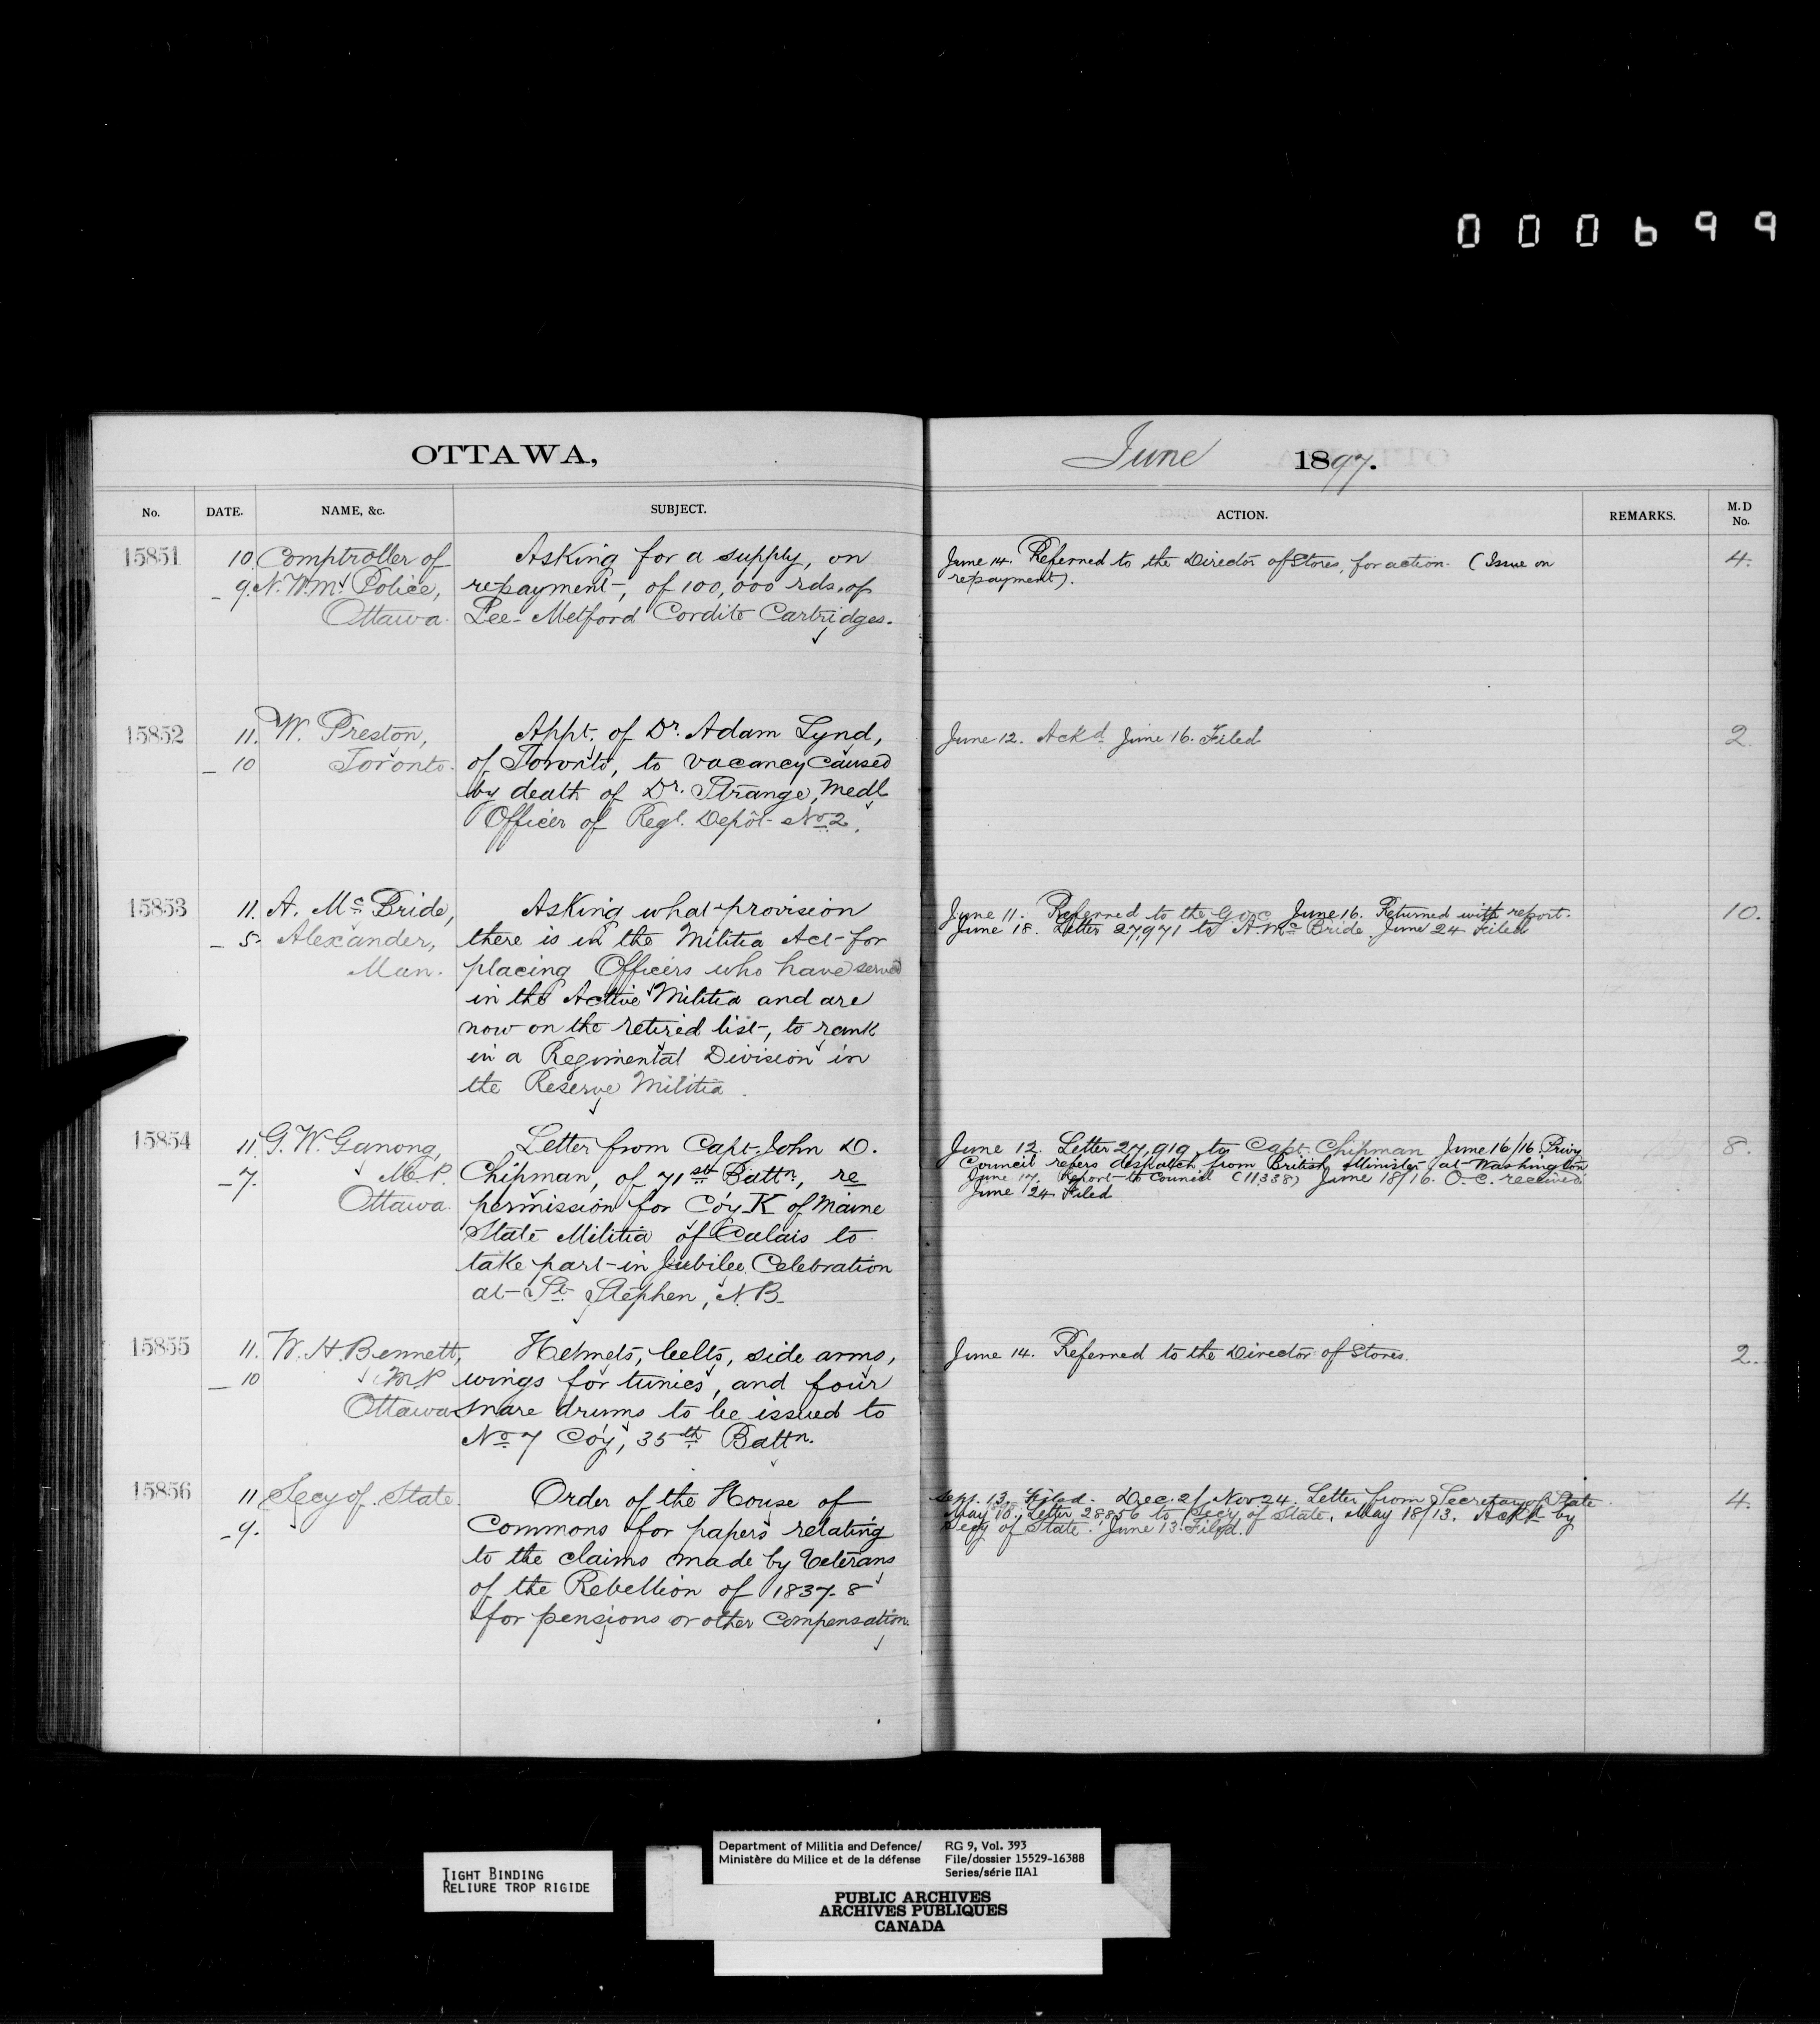 000699
OTTAWA,
June 1897.
No. DATE. NAME, &c. SUBJECT. ACTION. REMARKS. M.D No.
15851 10. Comptroller of Asking for a supply, on June 14. Referred to the Director of Stores, for action. (Issue on 4.
– 9. N.W.M. Police, repayment, of 100,000 rds. of repayment).
Ottawa. Lee-Metford Cordite Cartridges.
15852 11. W. Preston, Appt. of Dr. Adam Lynd, June 12. Ackd. June 16. Filed 2.
– 10 Toronto. of Toronto, to vacancy caused
by death of Dr. Strange, Medl
Officer of Regl. Depôt No 2.
15853 11. A. McBride, Asking what provision June 11. Referred to the G.O.C. June 16. Returned with report. 10.
– 5. Alexander, there is in the Militia Act for June 18. Letter 27,971 to A. McBride. June 24 Filed
Man. placing Officers who have served
in the Active Militia and are
now on the retired list, to rank
in a Regimental Division in
the Reserve Militia.
15854 11. G. W. Ganong, Letter from Capt. John D. June 12. Letter 27,919, to Capt. Chipman June 16/16 Privy 8.
– 7. M.P. Chipman, of 71st Battn, re Council refers despatch from British Minister at Washington
Ottawa. permission for Coy K of Maine June 17. Report to Council (11338) June 18/16. O.C. received
State Militia of Calais to June 24 Filed
take part in Jubilee Celebration
at St. Stephen, N.B.
15855 11. W. H. Bennett, Helmets, belts, side arms, June 14. Referred to the Director of Stores. 2.
– 10 M.P. wings for tunics, and four
Ottawa snare drums to be issued to
No 7 Coy, 35th Battn.
15856 11 Secy of State. Order of the House of Sept. 13. Filed. Dec. 2/Nov 24. Letter from Secretary of State 4.
– 9. Commons for papers relating May 10. Letter 28856 to Secy of State. May 18/13. Ackd by
to the claims made by Veterans Secy of State. June 13. Filed.
of the Rebellion of 1837-8
for pensions or other compensation.
TIGHT BINDING
RELIURE TROP RIGIDE
Department of Militia and Defence/ RG 9, Vol. 393
Ministère du Milice et de la défense File/dossier 15529-16388
Series/série IIA1
PUBLIC ARCHIVES
ARCHIVES PUBLIQUES
CANADA